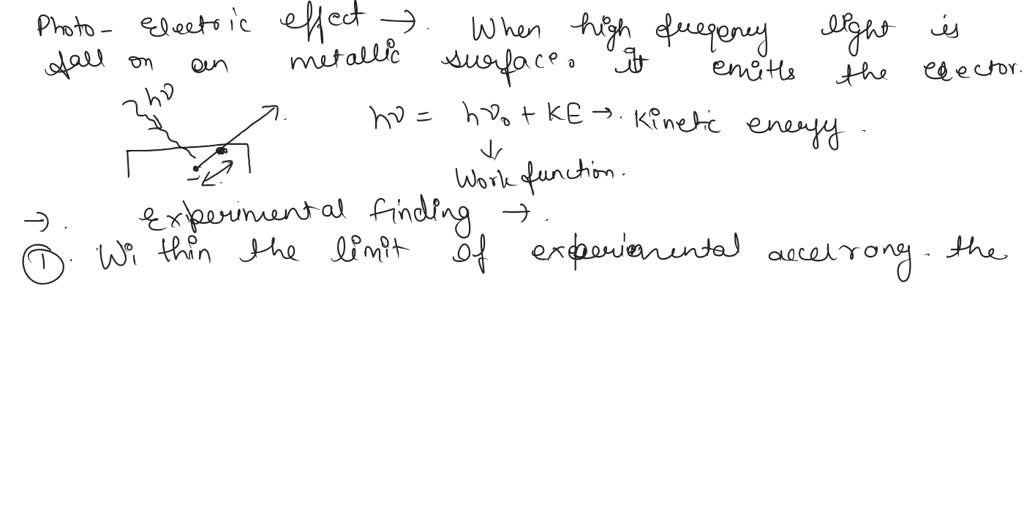 Photo - Electric effect →. When high fueqency light is
fall on an metallic surface. it emitts the elector.
hν
hν = hν₀ + KE →. Kinetic energy.
↓
Work function.
-
→. Experimental finding →.
①. Within the limit of experiemental accelrony. the